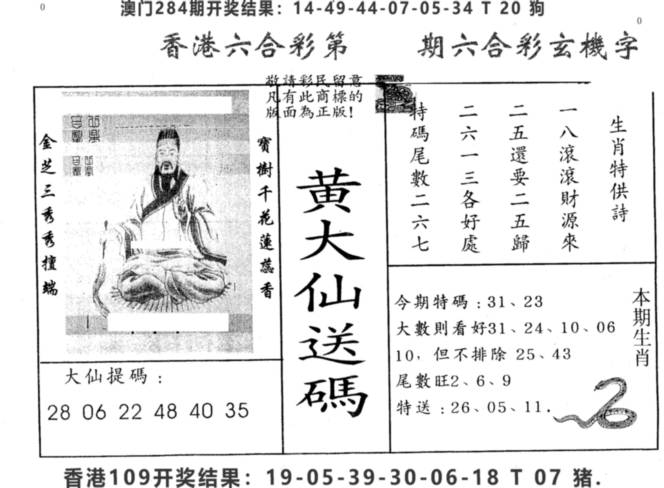 澳门284期开奖结果：14-49-44-07-05-34 T 20 狗
0
0
香港六合彩第 期六合彩玄機字
敬請彩民留意
凡有此商標的
版面為正版!
金芝三秀秀擅端
寶樹千花蓮蕊香
大仙提碼：
28 06 22 48 40 35
黃大仙送碼
生肖特供詩
一八滾滾財源來
二五還要二五歸
二六一三各好處
特碼尾數二六七
今期特碼：31、23
大數則看好31、24、10、06
10，但不排除 25、43
尾數旺2、6、9
特送：26、05、11．
本期生肖
香港109开奖结果：19-05-39-30-06-18 T 07 猪.